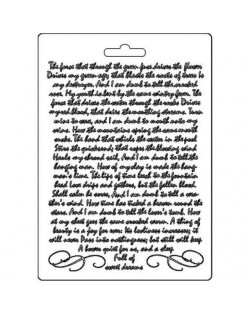 The force that through the green fuse drives the flower
Drives my green age; that blasts the roots of trees Is
my destroyer. And I am dumb to tell the crooked
rose My youth is bent by the same wintry fever. The
force that drives the water through the rocks Drives
my red blood; that dries the mouthing streams Turns
mine to wax. And I am dumb to mouth unto my
veins How at the mountain spring the same mouth
sucks. The hand that whirls the water in the pool
Stirs the quicksand; that ropes the blowing wind
Hauls my shroud sail. And I am dumb to tell the
hanging man How of my clay is made the hang
man's lime. The lips of time leech to the fountain
head Love drips and gathers, but the fallen blood
Shall calm her sores. And I am dumb to tell a wea-
ther's wind How time has ticked a heaven round the
stars. And I am dumb to tell the lover's tomb How
at my sheet goes the same crooked worm. A thing of
beauty is a joy for ever: Its loveliness increases; it
will never Pass into nothingness; but still will keep
A bower quiet for us, and a sleep
Full of
sweet dreams